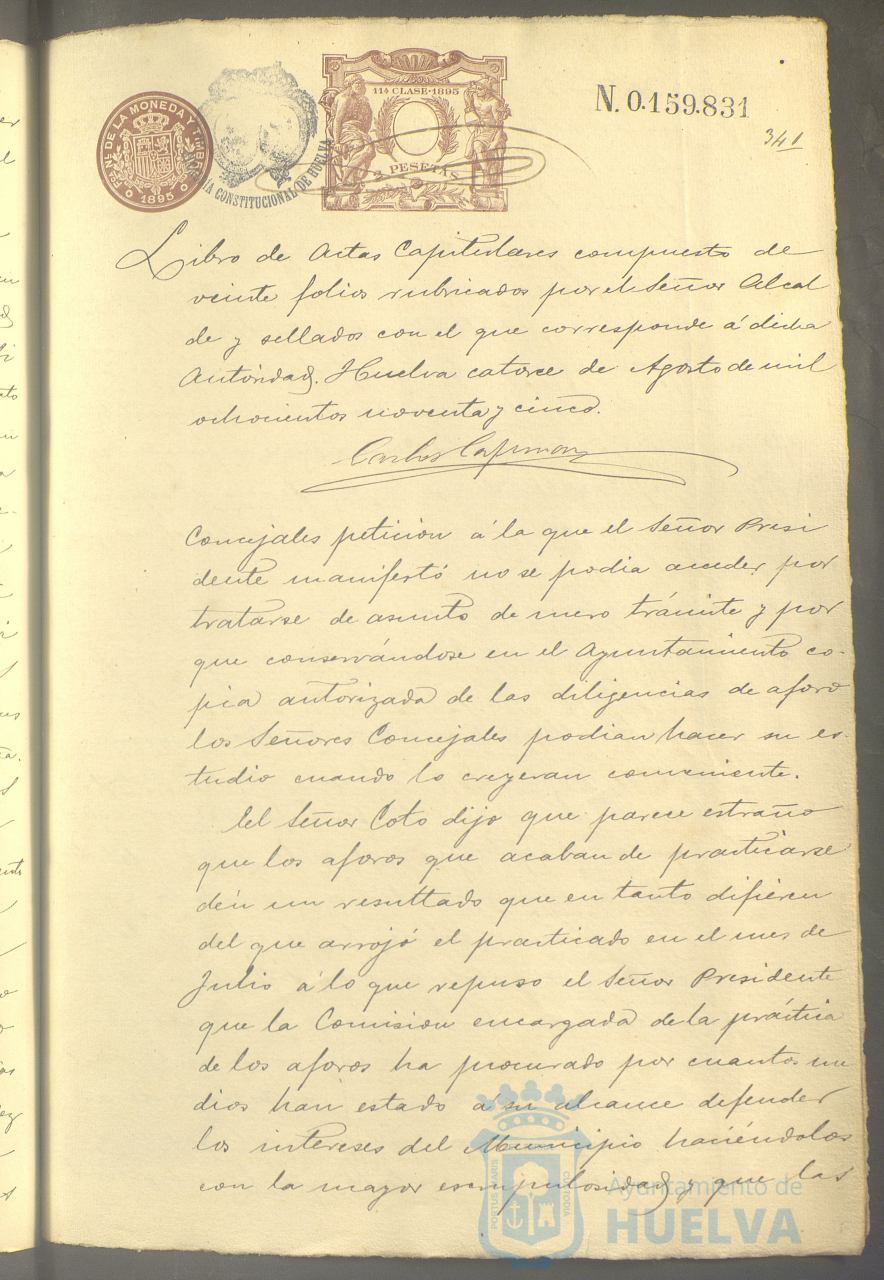 FAB. NAL. DE LA MONEDA Y TIMBRE
1895
ALCALDIA CONSTITUCIONAL DE HUELVA
11ª CLASE·1895
2 PESETAS
N. 0.159.831
341
Libro de Actas Capitulares compuesto de
veinte folios rubricados por el Señor Alcal
de y sellados con el que corresponde á dicha
Autoridad. Huelva catorce de Agosto de mil
ochocientos noventa y cinco.
Carlos
Concejales peticion á la que el Señor Presi
dente manifestó no se podia acceder por
tratarse de asunto de mero trámite y por
que conservándose en el Ayuntamiento co-
pia autorizada de las diligencias de aforo
los Señores Concejales podian hacer su es-
tudio cuando lo creyeran conveniente.
El Señor Coto dijo que parece estraño
que los aforos que acaban de practicarse
dén un resultado que en tanto difieren
del que arrojó el practicado en el mes de
Julio á lo que repuso el Señor Presidente
que la Comision encargada de la práctica
de los aforos ha procurado por cuantos me
dios han estado á su alcance defender
los intereses del Municipio haciéndolos
con la mayor escrupulosidad y que las
PORTUS MARIS CUSTODIA
Ayuntamiento de
HUELVA